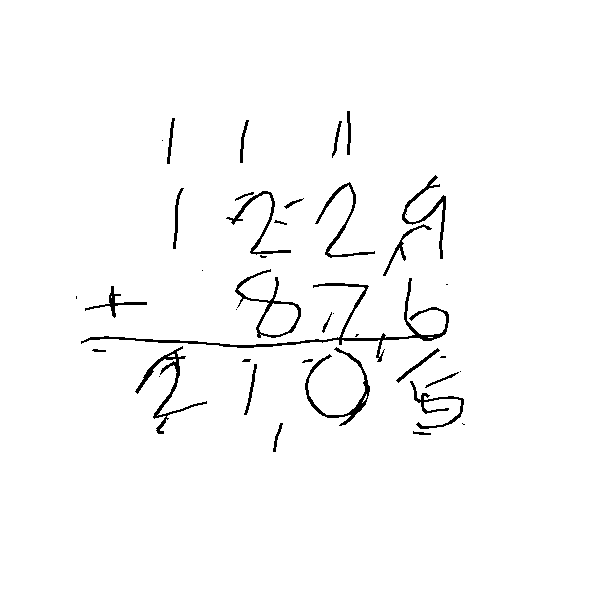 1 1 1
1 2 2 9
+ 8 7 6
2 1 0 5